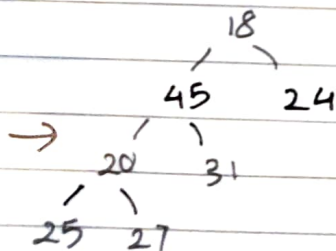 18
45 24
→ 20 31
25 27